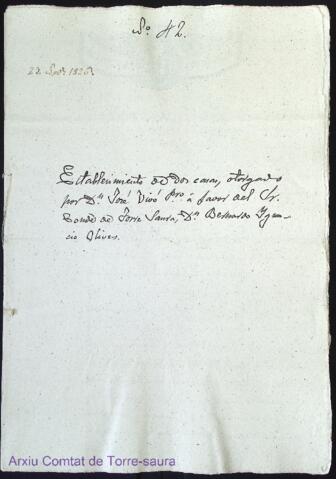 Nº 42.
Establecimiento de dos casas, otorgado
por Dⁿ José Vivó Pro. á favor del Sr.
Conde de Torre Saura, Dⁿ Bernardo Ygna-
cio Olives.
Arxiu Comtat de Torre-saura